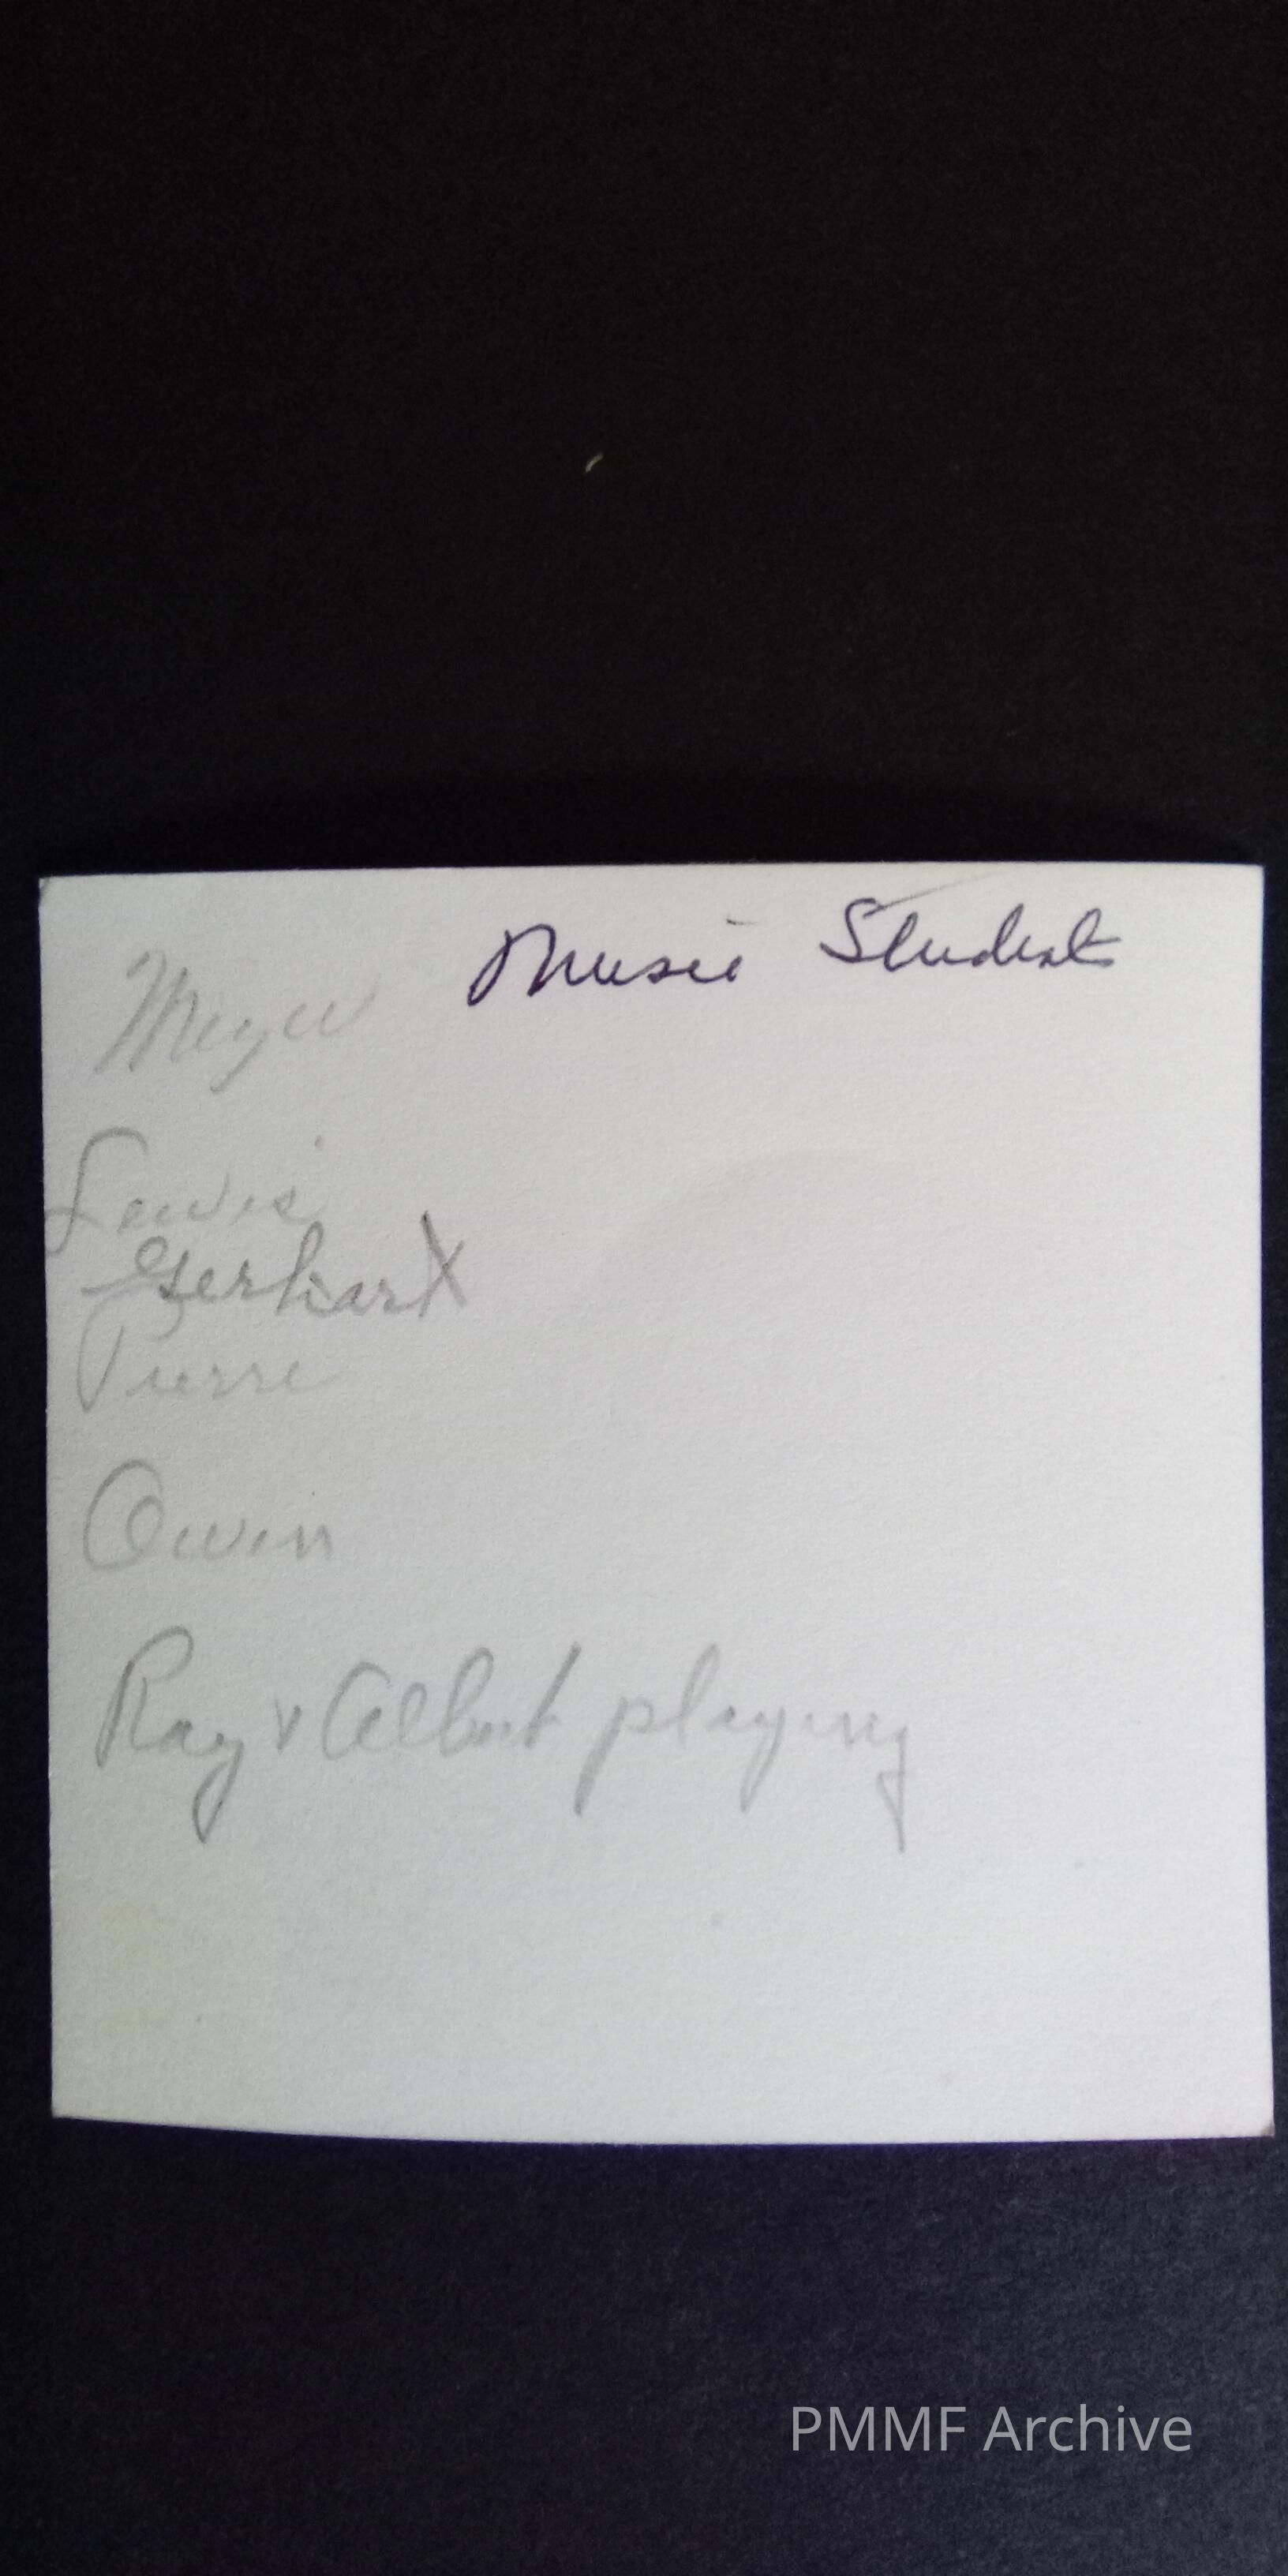 Music Students
Meyer
Lewis
Gerhart
Pierre
Owen
Ray & Albert playing
PMMF Archive